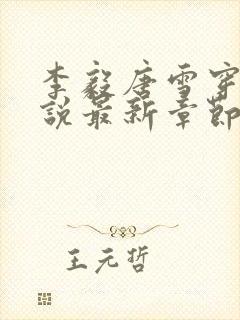 李毅唐雪穿
說最新章節
王元哲